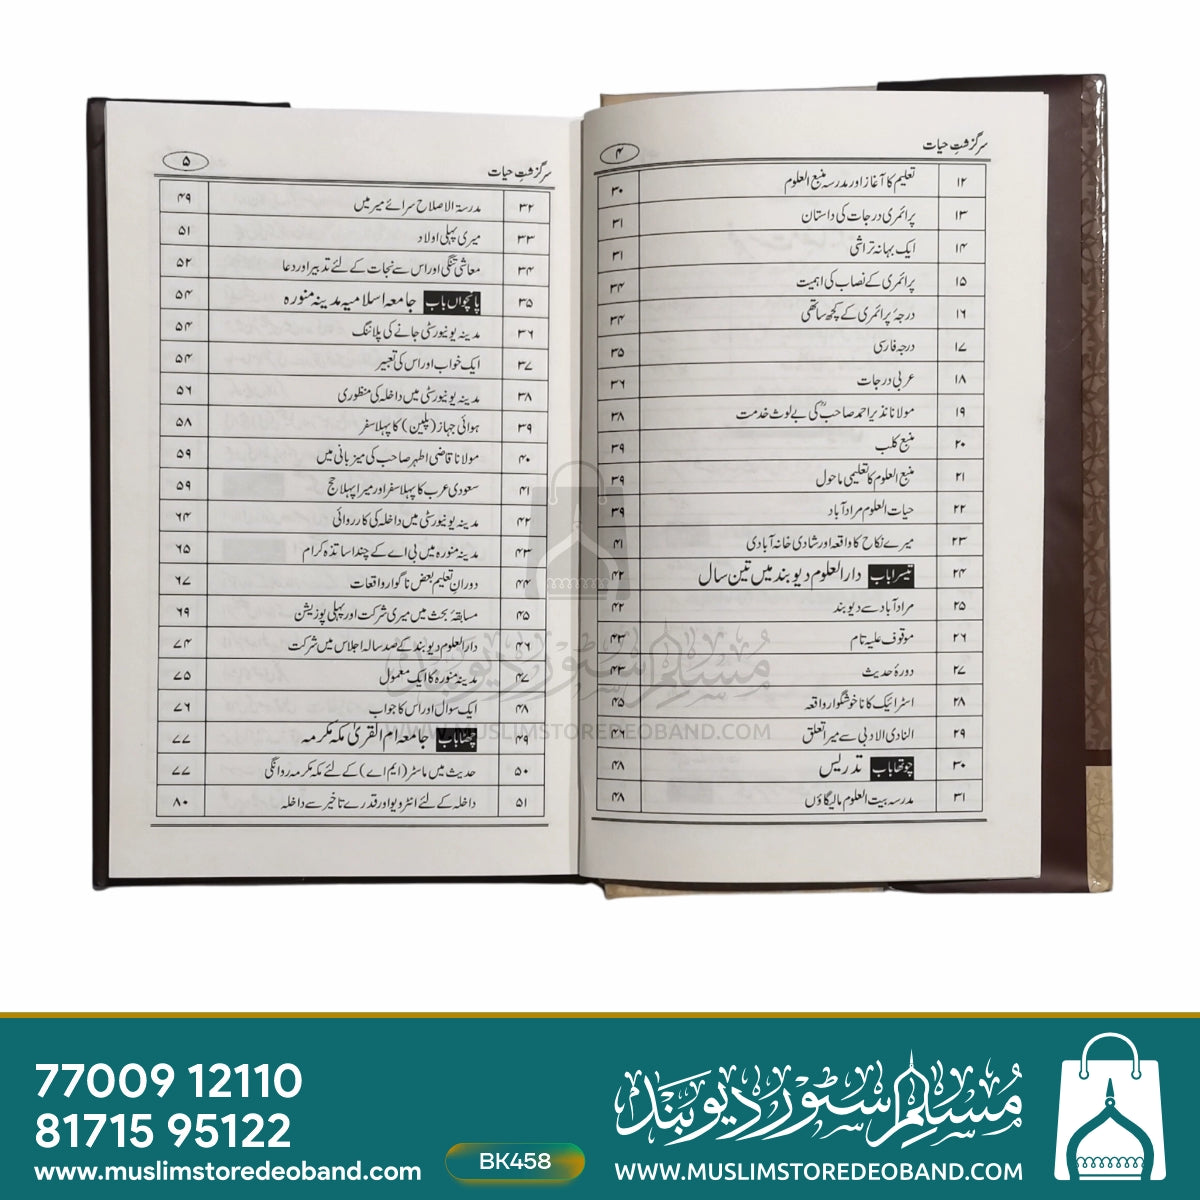 سرگزشتِ حیات ۴
۱۲ تعلیم کا آغاز اور مدرسہ منبع العلوم ۳۰
۱۳ پرائمری درجات کی داستان ۳۱
۱۴ ایک بہانہ تراشی ۳۱
۱۵ پرائمری کے نصاب کی اہمیت ۳۴
۱۶ درجۂ پرائمری کے کچھ ساتھی ۳۴
۱۷ درجہ فارسی ۳۵
۱۸ عربی درجات ۳۶
۱۹ مولانا نذیر احمد صاحبؒ کی بے لوث خدمت ۳۸
۲۰ منبع کلب ۳۹
۲۱ منبع العلوم کا تعلیمی ماحول ۳۹
۲۲ حیات العلوم مراد آباد ۳۹
۲۳ میرے نکاح کا واقعہ اور شادی خانہ آبادی ۴۱
۲۴ تیسرا باب دارالعلوم دیوبند میں تین سال ۴۲
۲۵ مراد آباد سے دیوبند ۴۲
۲۶ موقوف علیہ تام ۴۳
۲۷ دورۂ حدیث ۴۳
۲۸ اسٹرائیک کا ناخوشگوار واقعہ ۴۵
۲۹ النادی الادبی سے میرا تعلق ۴۶
۳۰ چوتھا باب تدریس ۴۸
۳۱ مدرسہ بیت العلوم مالیگاؤں ۴۸
سرگزشتِ حیات ۵
۳۲ مدرسۃ الاصلاح سرائے میر میں ۴۹
۳۳ میری پہلی اولاد ۵۱
۳۴ معاشی تنگی اور اس سے نجات کے لئے تدبیر اور دعا ۵۲
۳۵ پانچواں باب جامعہ اسلامیہ مدینہ منورہ ۵۴
۳۶ مدینہ یونیورسٹی جانے کی پلاننگ ۵۴
۳۷ ایک خواب اور اس کی تعبیر ۵۴
۳۸ مدینہ یونیورسٹی میں داخلہ کی منظوری ۵۶
۳۹ ہوائی جہاز (پلین) کا پہلا سفر ۵۸
۴۰ مولانا قاضی اطہر صاحب کی میزبانی میں ۵۹
۴۱ سعودی عرب کا پہلا سفر اور میرا پہلا حج ۵۹
۴۲ مدینہ یونیورسٹی میں داخلہ کی کارروائی ۶۴
۴۳ مدینہ منورہ میں بی اے کے چند اساتذہ کرام ۶۵
۴۴ دورانِ تعلیم بعض ناگوار واقعات ۶۷
۴۵ مسابقۂ بحث میں میری شرکت اور پہلی پوزیشن ۶۹
۴۶ دارالعلوم دیوبند کے صد سالہ اجلاس میں شرکت ۷۴
۴۷ مدینہ منورہ کا ایک معمول ۷۵
۴۸ ایک سوال اور اس کا جواب ۷۶
۴۹ چھٹا باب جامعہ ام القریٰ مکہ مکرمہ ۷۷
۵۰ حدیث میں ماسٹر (ایم اے) کے لئے مکہ مکرمہ روانگی ۷۷
۵۱ داخلہ کے لئے انٹرویو اور قدرے تاخیر سے داخلہ ۸۰
مسلم سٹور دیوبند
WWW.MUSLIMSTOREDEOBAND.COM
77009 12110
81715 95122
www.muslimstoredeoband.com
BK458
مسلم سٹور دیوبند
WWW.MUSLIMSTOREDEOBAND.COM